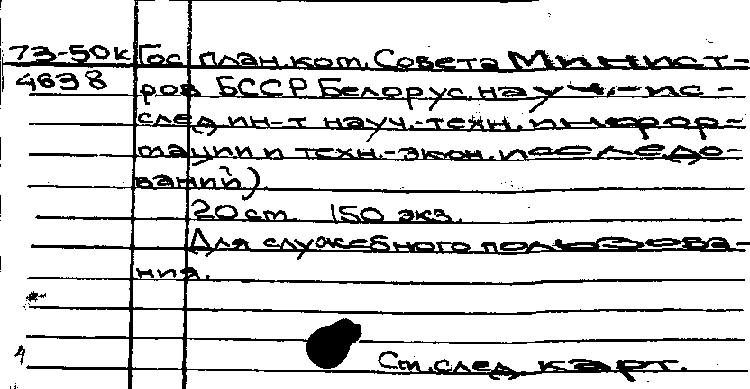 73-50к Гос. план. ком. Совета Минист-
4638 ров БССР Белорус. науч.-ис-
след. ин-т науч.-техн. инфор-
мации и техн.-экон. исследо-
ваний)
20 ст. 150 экз.
Для служебного пользова-
ния.
4
См. след. карт.